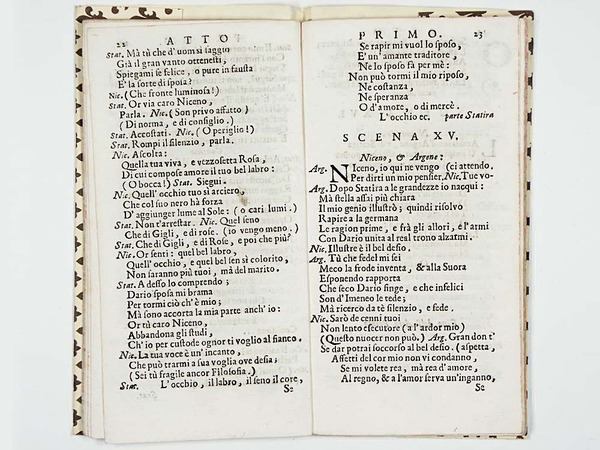 22 ATTO
Stat. Mà tù che d'uom sì saggio
Già il gran vanto ottenesti,
Spiegami se felice, o pure in fausta
E' la sorte di sposa?
Nic. (Che fronte luminosa!)
Stat. Or via caro Niceno,
Parla. Nic. (Son privo affatto)
(Di norma, e di consiglio.)
Stat. Accostati. Nic. (O periglio!)
Stat. Rompi il silenzio, parla.
Nic. Ascolta:
Quella tua viva, e vezzosetta Rosa,
Di cui compose amore il tuo bel labro:
(O bocca!) Stat. Siegui.
Nic. Quell' occhio tuo sì arciero,
Che col suo nero hà forza
D' aggiunger lume al Sole: (o cari lumi.)
Stat. Non t'arrestar. Nic. Quel seno
Che di Gigli, e di rose. (io vengo meno.)
Stat. Che di Gigli, e di Rose, e poi che più?
Nic. Or senti: quel bel labro,
Quell' occhio, e quel bel sen sì colorito,
Non saranno più tuoi, mà del marito.
Stat. A desso lo comprendo;
Dario sposa mi brama
Per tormi ciò ch' è mio;
Mà sono accorta la mia parte anch' io:
Or tù caro Niceno,
Abbandona gli studi,
Ch' io per custode ognor ti voglio al fianco.
Nic. La tua voce è un' incanto,
Che può trarmi a sua voglia ove desia;
(Sei tù fragile ancor Filosofia.)
Stat. L' occhio, il labro, il seno il core,
Se
PRIMO. 23
Se rapir mi vuol lo sposo,
E' un' amante traditore,
Ne lo sposo fà per mè:
Non può tormi il mio riposo,
Ne costanza,
Ne speranza
O d'amore, o di mercè.
L'occhio ec. parte Statira
SCENA XV.
Niceno, & Argene:
Arg. Niceno, io qui ne vengo (ci attendo.
Per dirti un mio pensier. Nic. Tue vo-
Arg. Dopo Statira a le grandezze io nacqui:
Mà stella assai più chiara
Il mio genio illustrò; quindi risolvo
Rapire a la germana
Le ragion prime, e frà gli allori, e l'armi
Con Dario unita al real trono alzatmi.
Nic. Illustre è il bel desio.
Arg. Tù che fedel mi sei
Meco la frode inventa, & alla Suora
Esponendo rapporta
Che seco Dario finge, e che infelici
Son d'Imeneo le tede;
Mà ricerco da tè silenzio, e fede.
Nic. Sarò de cenni tuoi
Non lento esecutore (a l'ardor mio)
(Questo nuocer non può.) Arg. Gran don t'
Se dar potrai soccorso al bel desio. (aspetta,
Affetti del cor mio non vi condanno,
Se mi volete rea, mà rea d' amore,
Al regno, & a l'amor serva un'inganno,
Se